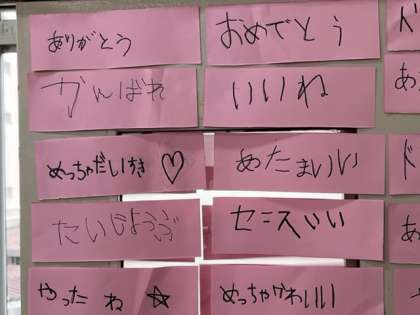 ありがとう
おめでとう
がんばれ
いいね
めっちゃだいすき♡
あたまいい
だいじょうぶ
センスいい
やったね☆
めっちゃかわいい
ド
あ
ド
あ